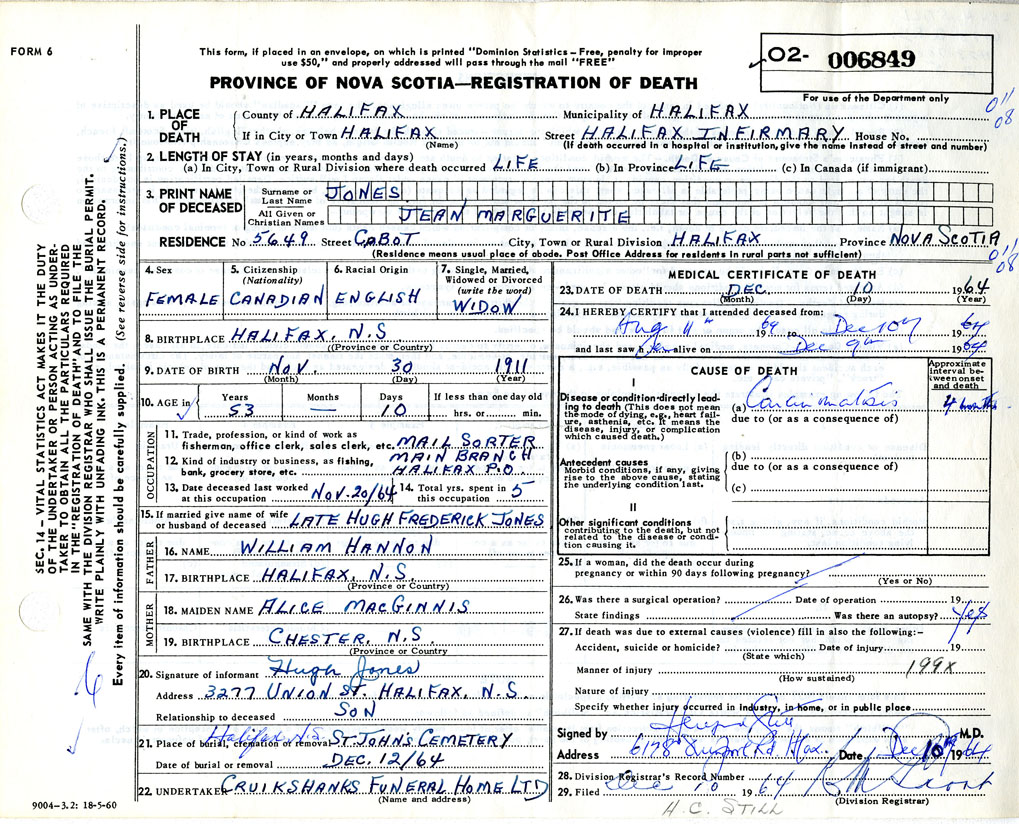 FORM 6
This form, if placed in an envelope, on which is printed "Dominion Statistics – Free, penalty for improper
use $50," and properly addressed will pass through the mail "FREE"
PROVINCE OF NOVA SCOTIA—REGISTRATION OF DEATH
02- 006849
For use of the Department only
011
08
1. PLACE OF DEATH
County of HALIFAX Municipality of HALIFAX
If in City or Town HALIFAX Street HALIFAX INFIRMARY House No.
(Name) (If death occurred in a hospital or institution, give the name instead of street and number)
2. LENGTH OF STAY (in years, months and days)
(a) In City, Town or Rural Division where death occurred LIFE (b) In Province LIFE (c) In Canada (if immigrant)
3. PRINT NAME OF DECEASED
Surname or Last Name JONES
All Given or Christian Names JEAN MARGUERITE
RESIDENCE No. 5649 Street CABOT City, Town or Rural Division HALIFAX Province NOVA SCOTIA
(Residence means usual place of abode. Post Office Address for residents in rural parts not sufficient)
011
08
4. Sex
FEMALE
5. Citizenship
(Nationality)
CANADIAN
6. Racial Origin
ENGLISH
7. Single, Married,
Widowed or Divorced
(write the word)
WIDOW
8. BIRTHPLACE HALIFAX, N.S
(Province or Country)
9. DATE OF BIRTH Nov. 30 1911
(Month) (Day) (Year)
10. AGE in
Years Months Days If less than one day old
53 — 10 hrs. or min.
OCCUPATION
11. Trade, profession, or kind of work as
fisherman, office clerk, sales clerk, etc. MAIL SORTER
12. Kind of industry or business, as fishing, MAIN BRANCH
bank, grocery store, etc. HALIFAX P.O.
13. Date deceased last worked at this occupation Nov. 20/64
14. Total yrs. spent in this occupation 5
15. If married give name of wife
or husband of deceased LATE HUGH FREDERICK JONES
FATHER
16. NAME WILLIAM HANNON
17. BIRTHPLACE HALIFAX, N.S.
(Province or Country)
MOTHER
18. MAIDEN NAME ALICE MACGINNIS
19. BIRTHPLACE CHESTER, N.S.
(Province or Country)
20. Signature of informant Hugh Jones
Address 3277 UNION ST. HALIFAX, N.S.
Relationship to deceased SON
21. Place of burial, cremation or removal Halifax N.S. ST. JOHN'S CEMETERY
Date of burial or removal DEC. 12/64
22. UNDERTAKER CRUIKSHANKS FUNERAL HOME LTD
(Name and address)
MEDICAL CERTIFICATE OF DEATH
23. DATE OF DEATH DEC. 10 1964
(Month) (Day) (Year)
24. I HEREBY CERTIFY that I attended deceased from:
Aug 11th 1964 to Dec 10th 1964
and last saw her alive on Dec 9th 1964
CAUSE OF DEATH
Approximate interval between onset and death
I
Disease or condition directly leading to death (This does not mean the mode of dying, e.g., heart failure, asthenia, etc. It means the disease, injury, or complication which caused death.)
(a) Carcinomatosis 4 months
due to (or as a consequence of)
Antecedent causes
Morbid conditions, if any, giving rise to the above cause, stating the underlying condition last.
(b)
due to (or as a consequence of)
(c)
II
Other significant conditions
contributing to the death, but not related to the disease or condition causing it.
25. If a woman, did the death occur during
pregnancy or within 90 days following pregnancy?
(Yes or No)
26. Was there a surgical operation? Date of operation 19
State findings Was there an autopsy? Yes
27. If death was due to external causes (violence) fill in also the following:–
Accident, suicide or homicide? Date of injury 19
(State which)
Manner of injury 199X
(How sustained)
Nature of injury
Specify whether injury occurred in industry, in home, or in public place
Signed by M.D.
Address 6178 Rd Hfx. Date Dec 10th 1964
28. Division Registrar's Record Number
29. Filed Dec 10 1964
(Division Registrar)
H. C. STILL
SEC. 14 – VITAL STATISTICS ACT MAKES IT THE DUTY
OF THE UNDERTAKER OR PERSON ACTING AS UNDER-
TAKER TO OBTAIN ALL THE PARTICULARS REQUIRED
IN THE "REGISTRATION OF DEATH" AND TO FILE THE
SAME WITH THE DIVISION REGISTRAR WHO SHALL ISSUE THE BURIAL PERMIT.
WRITE PLAINLY WITH UNFADING INK. THIS IS A PERMANENT RECORD.
Every item of information should be carefully supplied. (See reverse side for instructions.)
9004–3.2: 18-5-60